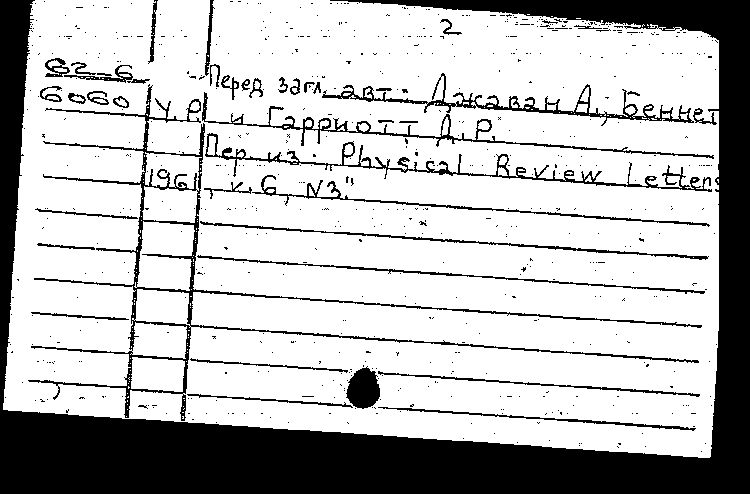 2
62-6 Перед загл. авт.: Джаван А., Беннет
6060 У.Р. и Гарриотт Д.Р.
Пер. из: "Physical Review Letters
1961, v. 6, N3."